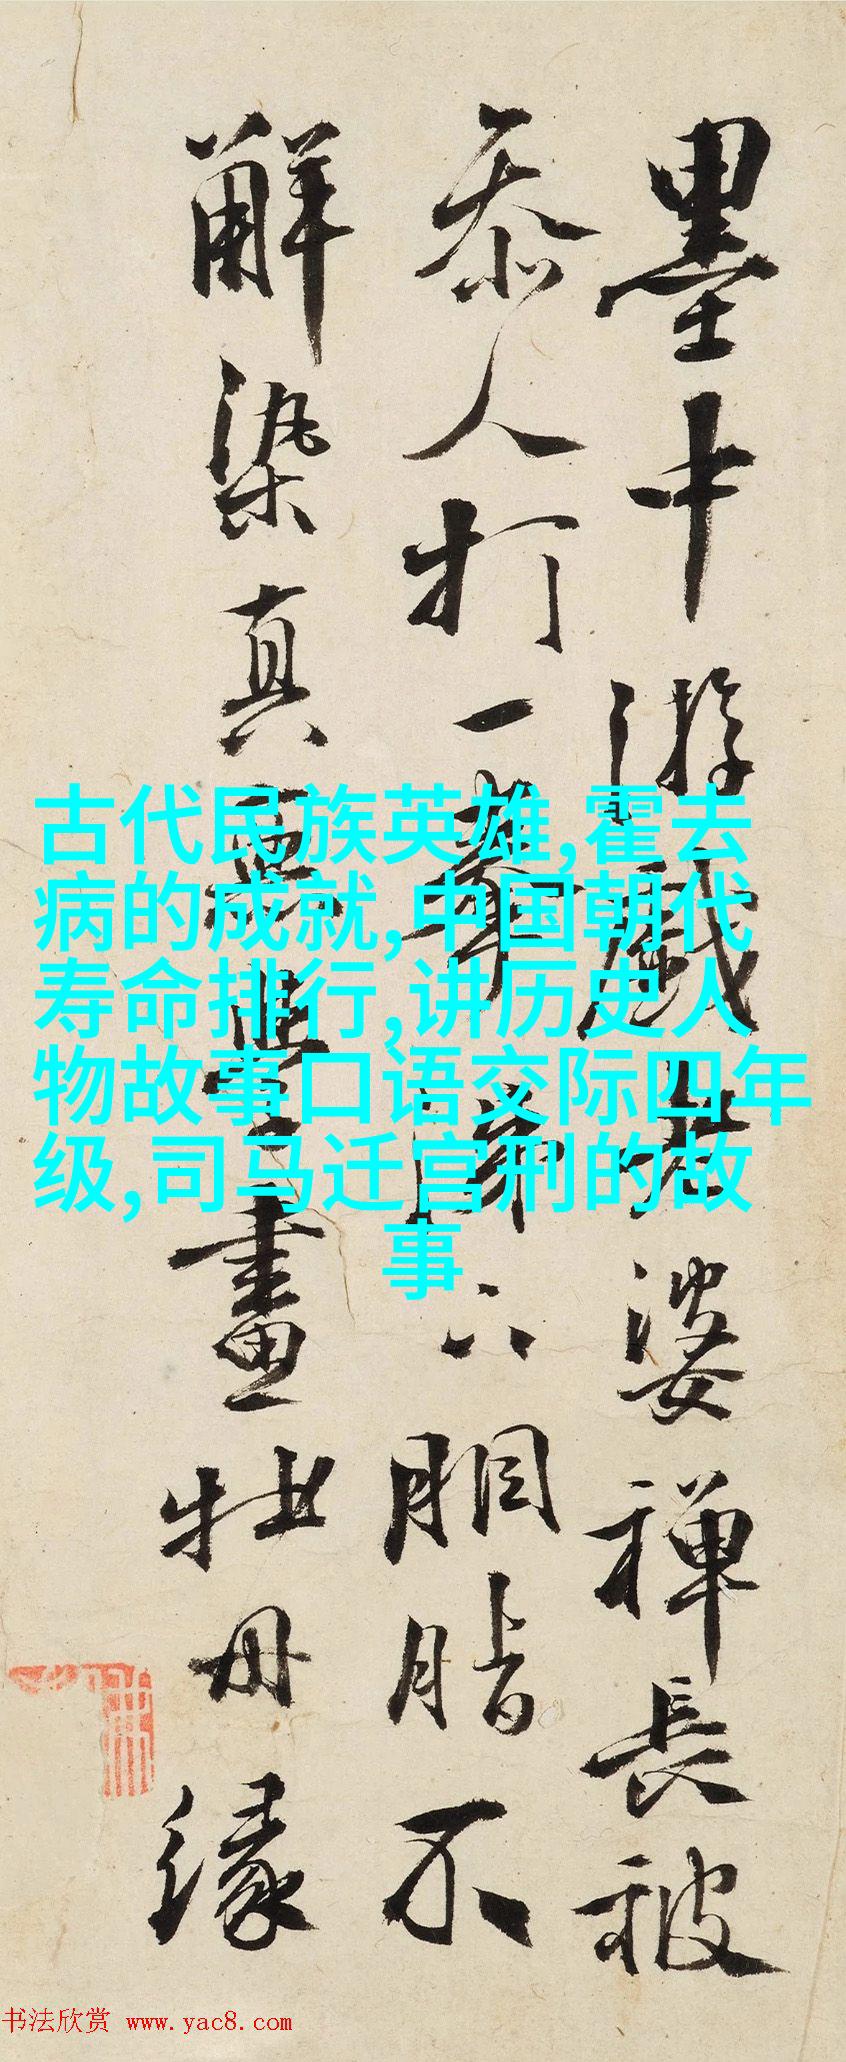 墨中游戲老婆禪長被
叅人打一拳涕下胭脂不
解染真畫牡丹緣
古代民族英雄,霍去
病的成就,中国朝代
寿命排行,讲历史人
物故事口语交际四年
级,司马迁宫刑的故
事
书法欣赏 www.yac8.com